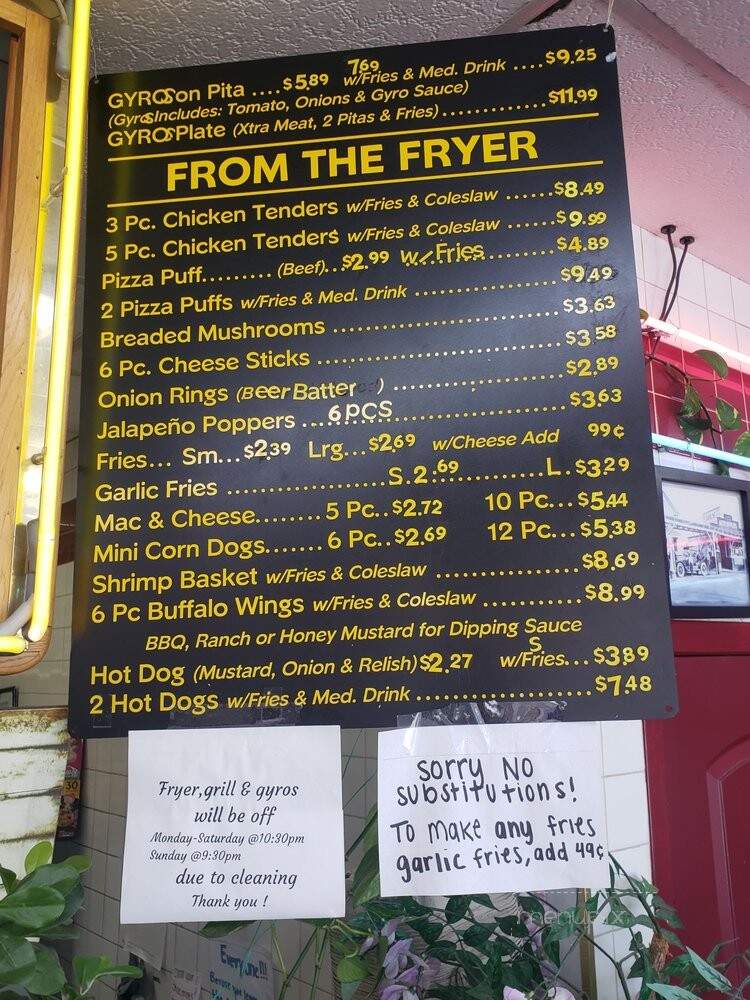 GYROS on Pita ....$5.89 7.69 w/Fries & Med. Drink ....$9.25
(Gyros Includes: Tomato, Onions & Gyro Sauce)
GYROS Plate (Xtra Meat, 2 Pitas & Fries)..................$11.99
FROM THE FRYER
3 Pc. Chicken Tenders w/Fries & Coleslaw ......$8.49
5 Pc. Chicken Tenders w/Fries & Coleslaw ......$9.99
Pizza Puff......... (Beef)...$2.99 w/Fries ..........$4.89
2 Pizza Puffs w/Fries & Med. Drink ....................$9.49
Breaded Mushrooms ................................$3.63
6 Pc. Cheese Sticks ..................................$3.58
Onion Rings (Beer Batter ) ........................$2.89
Jalapeño Poppers ....6 pcs.........................$3.63
Fries... Sm...$2.39 Lrg...$2.69 w/Cheese Add 99¢
Garlic Fries ....................S.2.69...........L.$3.29
Mac & Cheese........5 Pc..$2.72 10 Pc...$5.44
Mini Corn Dogs.......6 Pc..$2.69 12 Pc...$5.38
Shrimp Basket w/Fries & Coleslaw ..................$8.69
6 Pc Buffalo Wings w/Fries & Coleslaw ............$8.99
BBQ, Ranch or Honey Mustard for Dipping Sauce
Hot Dog (Mustard, Onion & Relish)$2.27 S w/Fries...$3.89
2 Hot Dogs w/Fries & Med. Drink ......................$7.48
Fryer,grill & gyros
will be off
Monday-Saturday @10:30pm
Sunday @9:30pm
due to cleaning
Thank you !
sorry NO
substitutions!
To make any fries
garlic fries, add 49¢